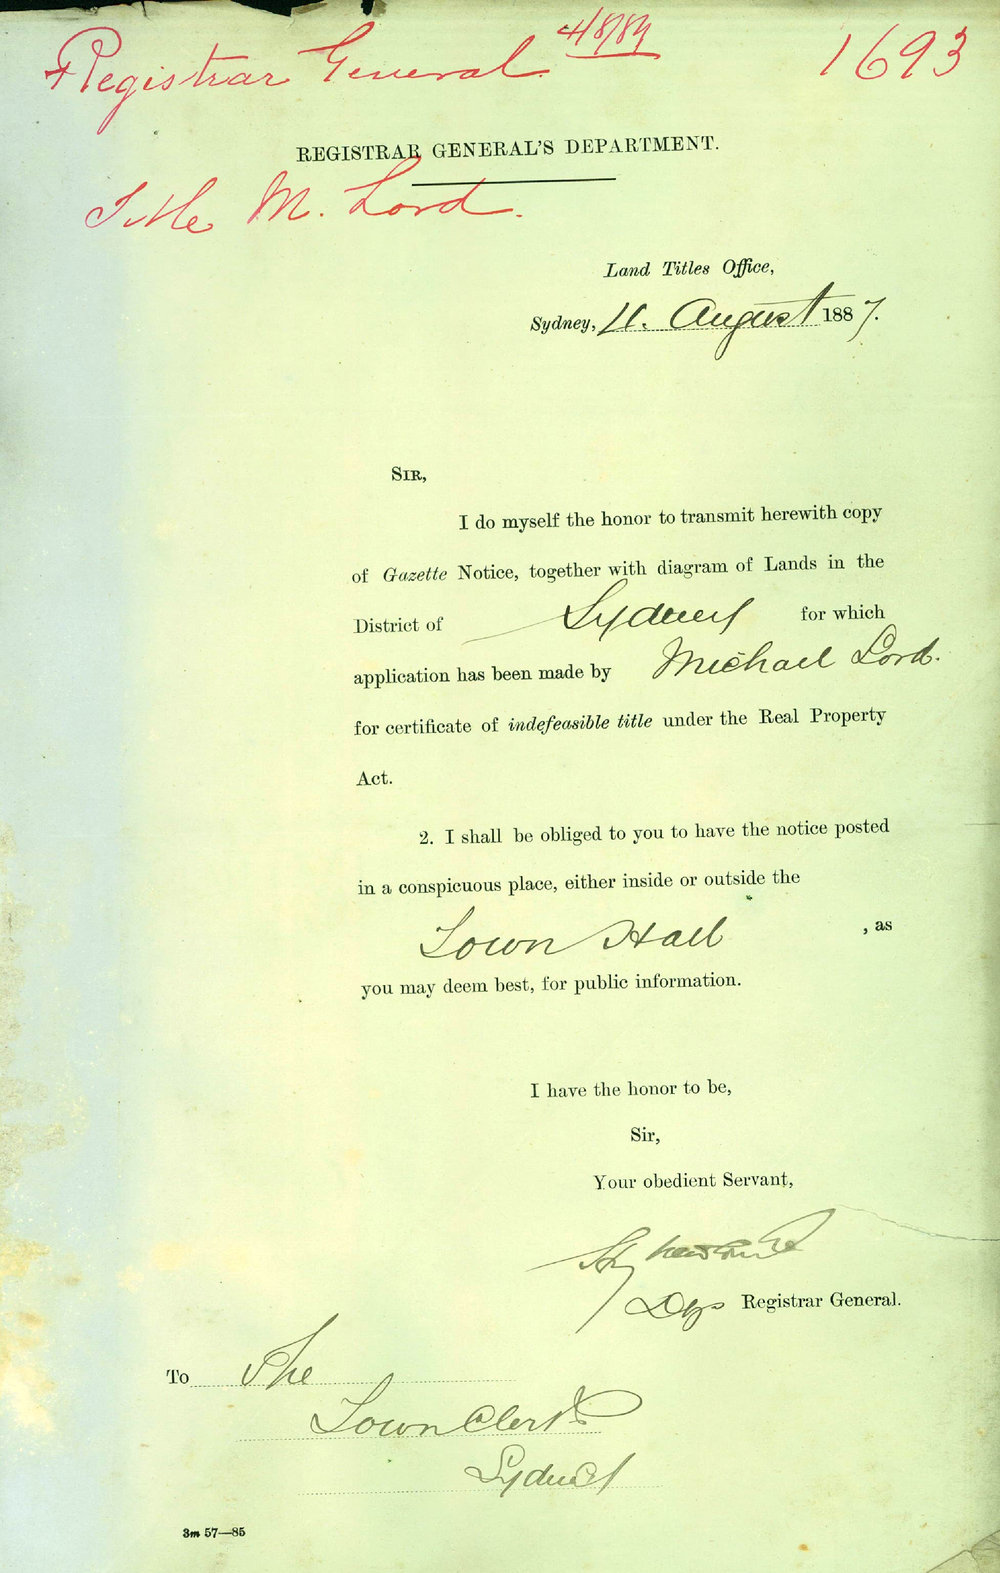 Registrar General
1693
REGISTRAR GENERAL'S DEPARTMENT.
Title M. Lord.
Land Titles Office,
Sydney, 11. August 1887.
SIR,
I do myself the honor to transmit herewith copy
of Gazette Notice, together with diagram of Lands in the
District of Sydney for which
application has been made by Michael Lord.
for certificate of indefeasible title under the Real Property
Act.
2. I shall be obliged to you to have the notice posted
in a conspicuous place, either inside or outside the
Town Hall , as
you may deem best, for public information.
I have the honor to be,
Sir,
Your obedient Servant,
Dep Registrar General.
To The
Town Clerk
Sydney
3m 57—85